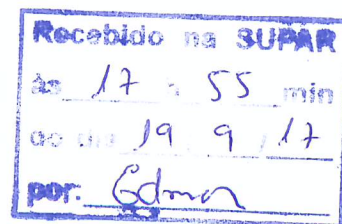 Recebido na SUPAR
às 17 : 55 min
do dia 19 9 / 17
por: